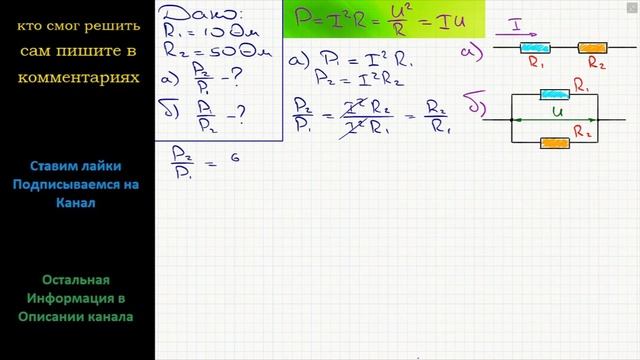 кто смог решить
сам пишите в
комментариях
Ставим лайки
Подписываемся на
Канал
Остальная
Информация в
Описании канала
Дано:
R₁ = 10 Ом
R₂ = 50 Ом
а) P₂/P₁ - ?
б) P₁/P₂ - ?
P = I²R = U²/R = IU
а) P₁ = I² R₁
P₂ = I² R₂
P₂/P₁ = I² R₂/I² R₁ = R₂/R₁
P₂/P₁ =
а)
I
R₁
R₂
б)
R₁
U
R₂